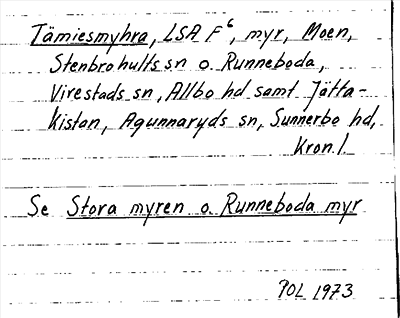 Tämiesmyhra, LSA F6, myr, Moen,
Stenbrohults sn o. Runneboda,
Virestads sn, Allbo hd samt Jätta-
kistan, Agunnaryds sn, Sunnerbo hd,
Kron. l.
Se Stora myren o. Runneboda myr
POL 1973